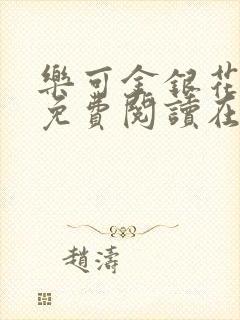 樂可金銀花
免費閱讀在
趙濤